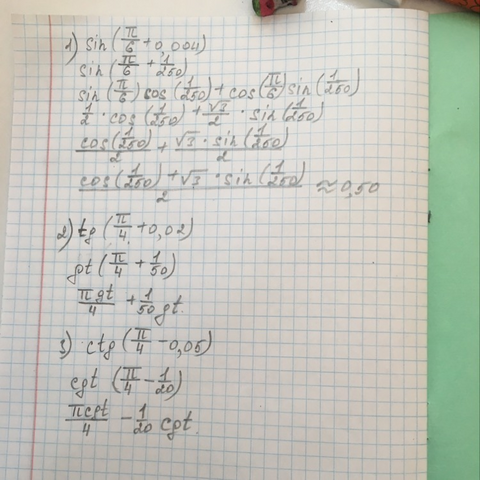 1) sin(π/6 + 0,004)
sin(π/6 + 1/250)
sin(π/6) cos(1/250) + cos(π/6) sin(1/250)
1/2 · cos(1/250) + √3/2 · sin(1/250)
cos(1/250)/2 + √3 · sin(1/250)/2
cos(1/250) + √3 · sin(1/250)/2 ≈ 0,50
2) tg(π/4 + 0,02)
gt(π/4 + 1/50)
πgt/4 + 1/50 gt.
3) ctg(π/4 - 0,05)
cgt (π/4 - 1/20)
πcgt/4 - 1/20 cgt.